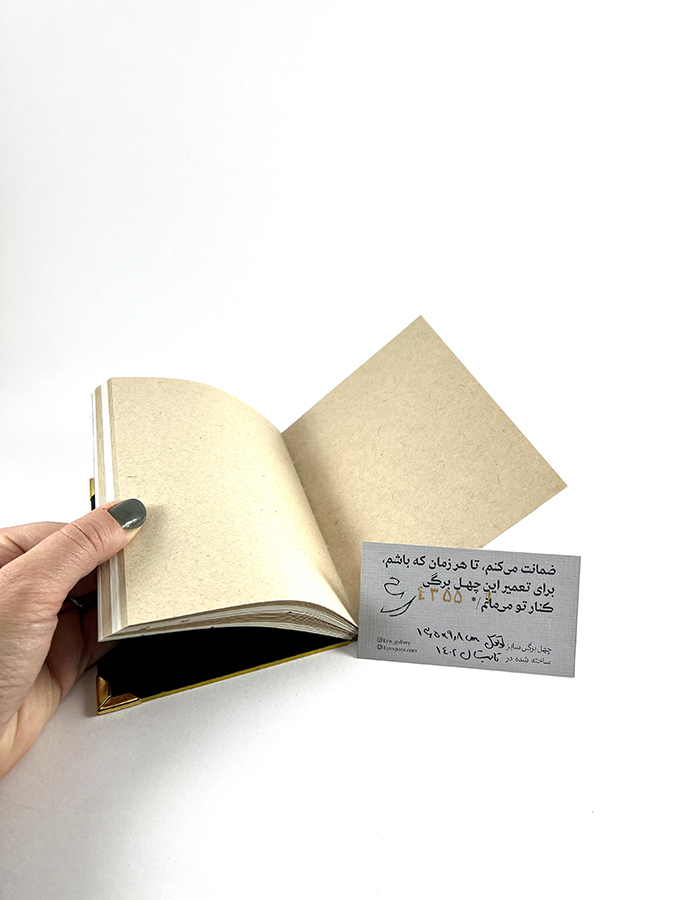 ضمانت می‌کنم، تا هر زمان که باشم،
برای تعمیر این چهل برگی
کنار تو می‌مانم/*
۴۳۵۵
چهل‌برگی سایز ۱۳٫۵×۹٫۸ cm
ساخته شده در تابستان ۱۴۰۲
Eyn_gallery
Eynspace.com